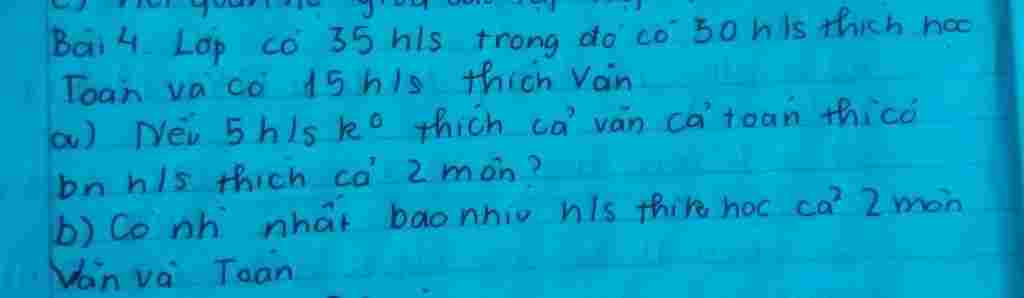 Bài 4 Lớp có 35 h/s trong đó có 30 h/s thích học
Toán và có 15 h/s thích Văn
a) Nếu 5 h/s k° thích cả văn cả toán thì có
bn h/s thích cả 2 môn?
b) Có nh nhất bao nhiu h/s thik học cả 2 môn
Văn và Toán